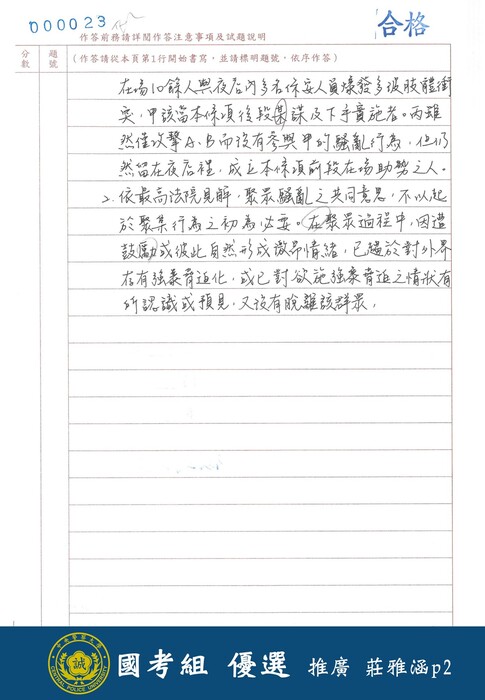 000023
合格
作答前務請詳閱作答注意事項及試題說明
分數
題號
(作答請從本頁第1行開始書寫,並請標明題號,依序作答)
在場10餘人與夜店內多名保安人員爆發多波肢體衝
突,甲該當本條項後段某謀及下手實施者。丙雖
然僅攻擊A、B而沒有參與甲的騷亂行為,但仍
然留在夜店裡,成立本條項前段在場助勢之人。
2. 依最高法院見解,聚眾騷亂之共同意思,不以起
於聚集行為之初為必要。在聚眾過程中,因遭
鼓勵或彼此自然形成激昂情緒,已趨於對外界
存有強暴脅迫化,或已對欲施強暴脅迫之情狀有
所認識或預見,又沒有脫離該群眾,
中央警察大學
誠
CENTRAL POLICE UNIVERSITY
國考組 優選 推廣 莊雅涵p2